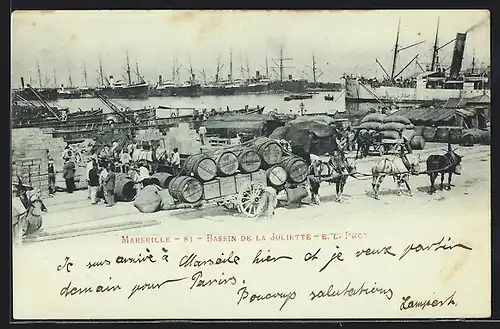 MARSEILLE - 81 - BASSIN DE LA JOLIETTE - E. L. PHOT
Je suis arrivé à Marseille hier et je veux partir
demain pour Paris.
Beaucoup salutations
Lampert